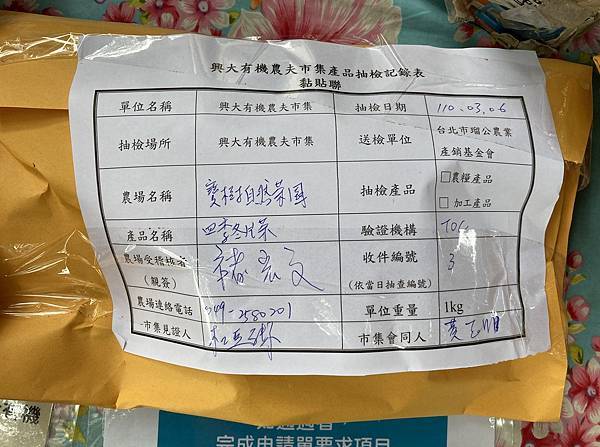 興大有機農夫市集產品抽檢記錄表
黏貼聯
單位名稱 興大有機農夫市集 抽檢日期 110.03.06
抽檢場所 興大有機農夫市集 送檢單位 台北市瑠公農業
產銷基金會
農場名稱 寶樹自然茶園 抽檢產品 □農糧產品
□加工產品
產品名稱 四季冬片茶 驗證機構 TOC
農場受稽核者
(親簽)
收件編號 3
(依當日抽查編號)
農場連絡電話 049-2580201 單位重量 1kg
市集見證人 市集會同人
有機
完成申請單要求項目